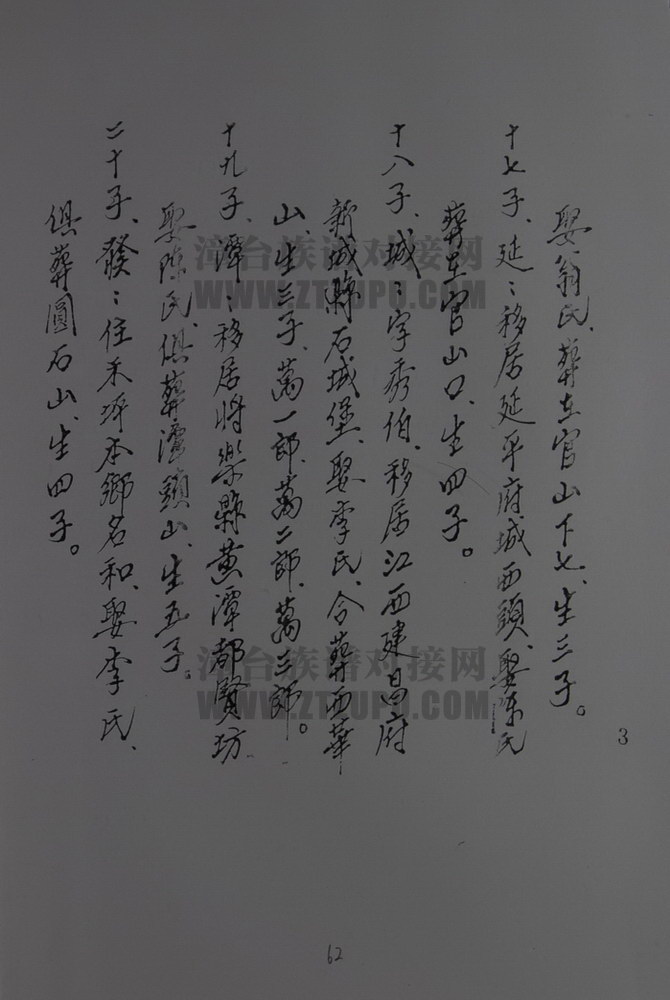 娶翁氏、葬在官山下七、生三子。
十七子、延:移居延平府城西頭、娶陳氏
葬在官山口、生四子。
十八子、城:字秀伯、移居江西建昌府
新城縣石城堡、娶李氏、合葬西華
山、生三子、萬一郎、萬二郎、萬三郎。
十九子、潭:移居將樂縣黄潭都賢坊
娶陳氏、俱葬潭頭山、生五子。
二十子、發:住禾坪本鄉名和、娶李氏、
俱葬圓石山、生四子。
3
62
漳台族谱对接网
WWW.ZTZUPU.COM
漳台族谱对接网
WWW.ZTZUPU.COM